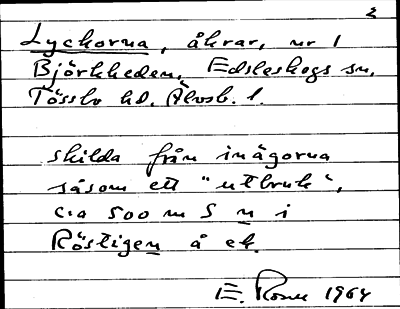 2
Lyckorna, åkrar, nr 1
Björkheden, Edsleskogs sn,
Tössbo hd. Älvsb. l.
skilda från inägorna
såsom ett "utbruk",
c:a 500 m S n i
Röstigen å ek.
E. 1964